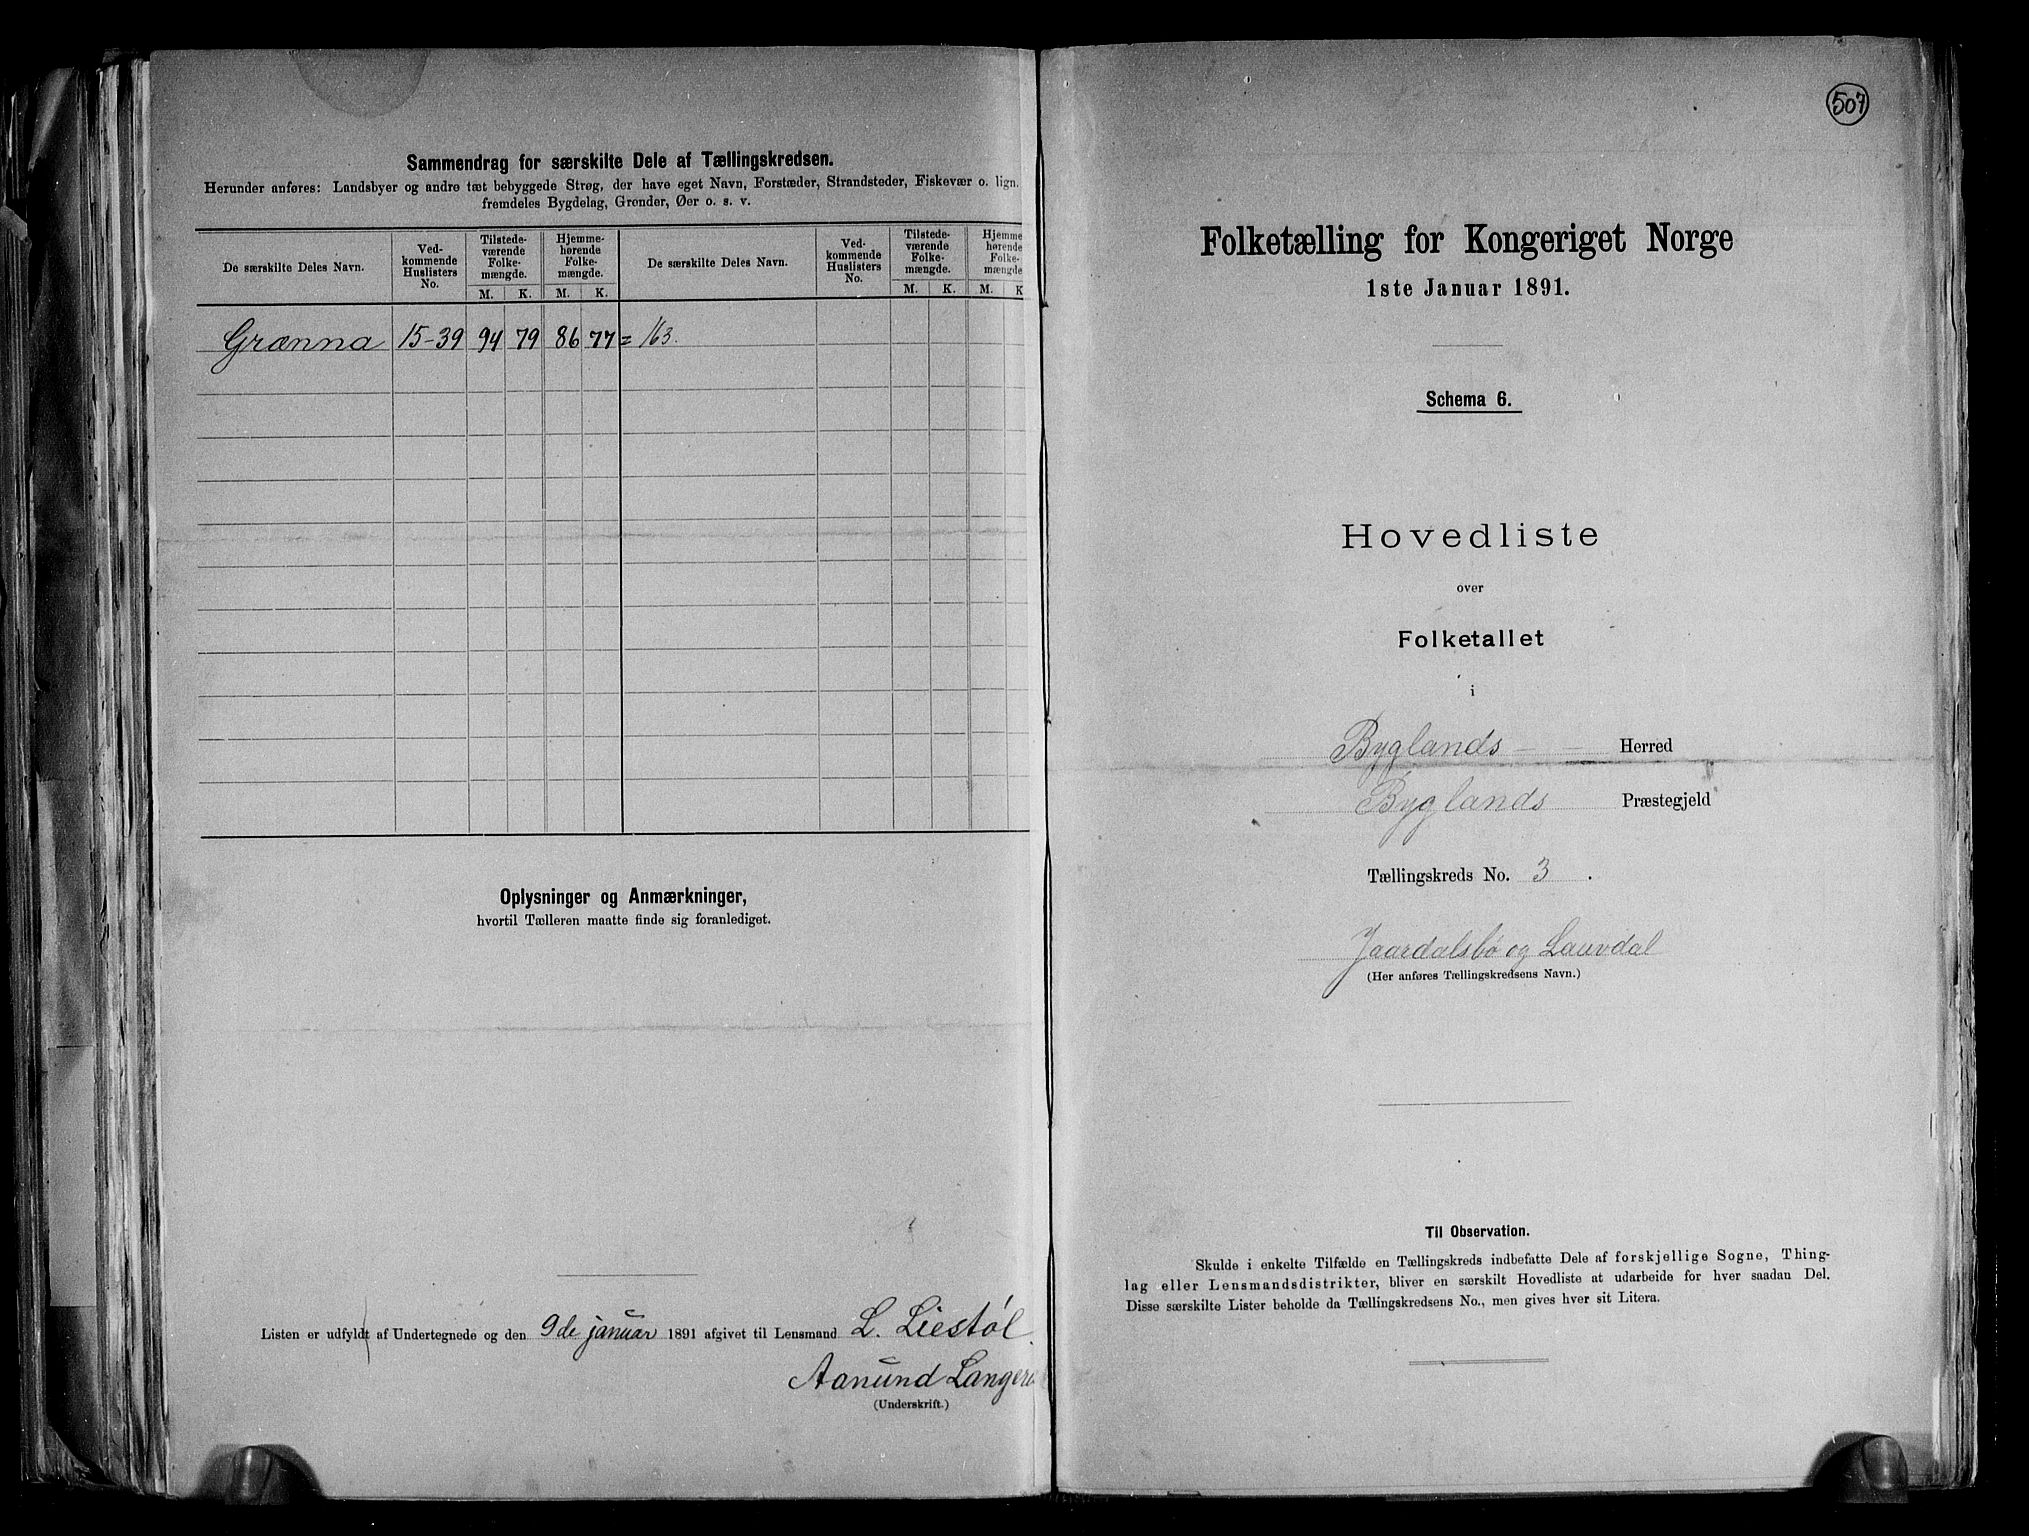 Sammendrag for særskilte Dele af Tællingskredsen.
Herunder anføres: Landsbyer og andre tæt bebyggede Strøg, der have eget Navn, Forstæder, Strandsteder, Fiskevær o. lign.
fremdeles Bygdelag, Grender, Øer o. s. v.
De særskilte Deles Navn.
Ved-
kommende
Huslisters
No.
Tilstede-
værende
Folke-
mængde.
Hjemme-
hørende
Folke-
mængde.
De særskilte Deles Navn.
Ved-
kommende
Huslisters
No.
Tilstede-
værende
Folke-
mængde.
Hjemme
hørende
Folke-
mængde
M. K. M. K. M. K. M. K
Grænna 15-39 94 79 86 77 = 163.
Oplysninger og Anmærkninger,
hvortil Tælleren maatte finde sig foranlediget.
Listen er udfyldt af Undertegnede og den 9de januar 1891 afgivet til Lensmand L. Liestøl
Aanund
(Underskrift.)
507
Folketælling for Kongeriget Norge
1ste Januar 1891.
Schema 6.
Hovedliste
over
Folketallet
i
Byglands Herred
Byglands Præstegjeld
Tællingskreds No. 3.
Jaardalsbø og Lauvdal
(Her anføres Tællingskredsens Navn.)
Til Observation.
Skulde i enkelte Tilfælde en Tællingskreds indbefatte Dele af forskjellige Sogne, Thing-
lag eller Lensmandsdistrikter, bliver en særskilt Hovedliste at udarbeide for hver saadan Del.
Disse særskilte Lister beholde da Tællingskredsens No., men gives hver sit Litera.